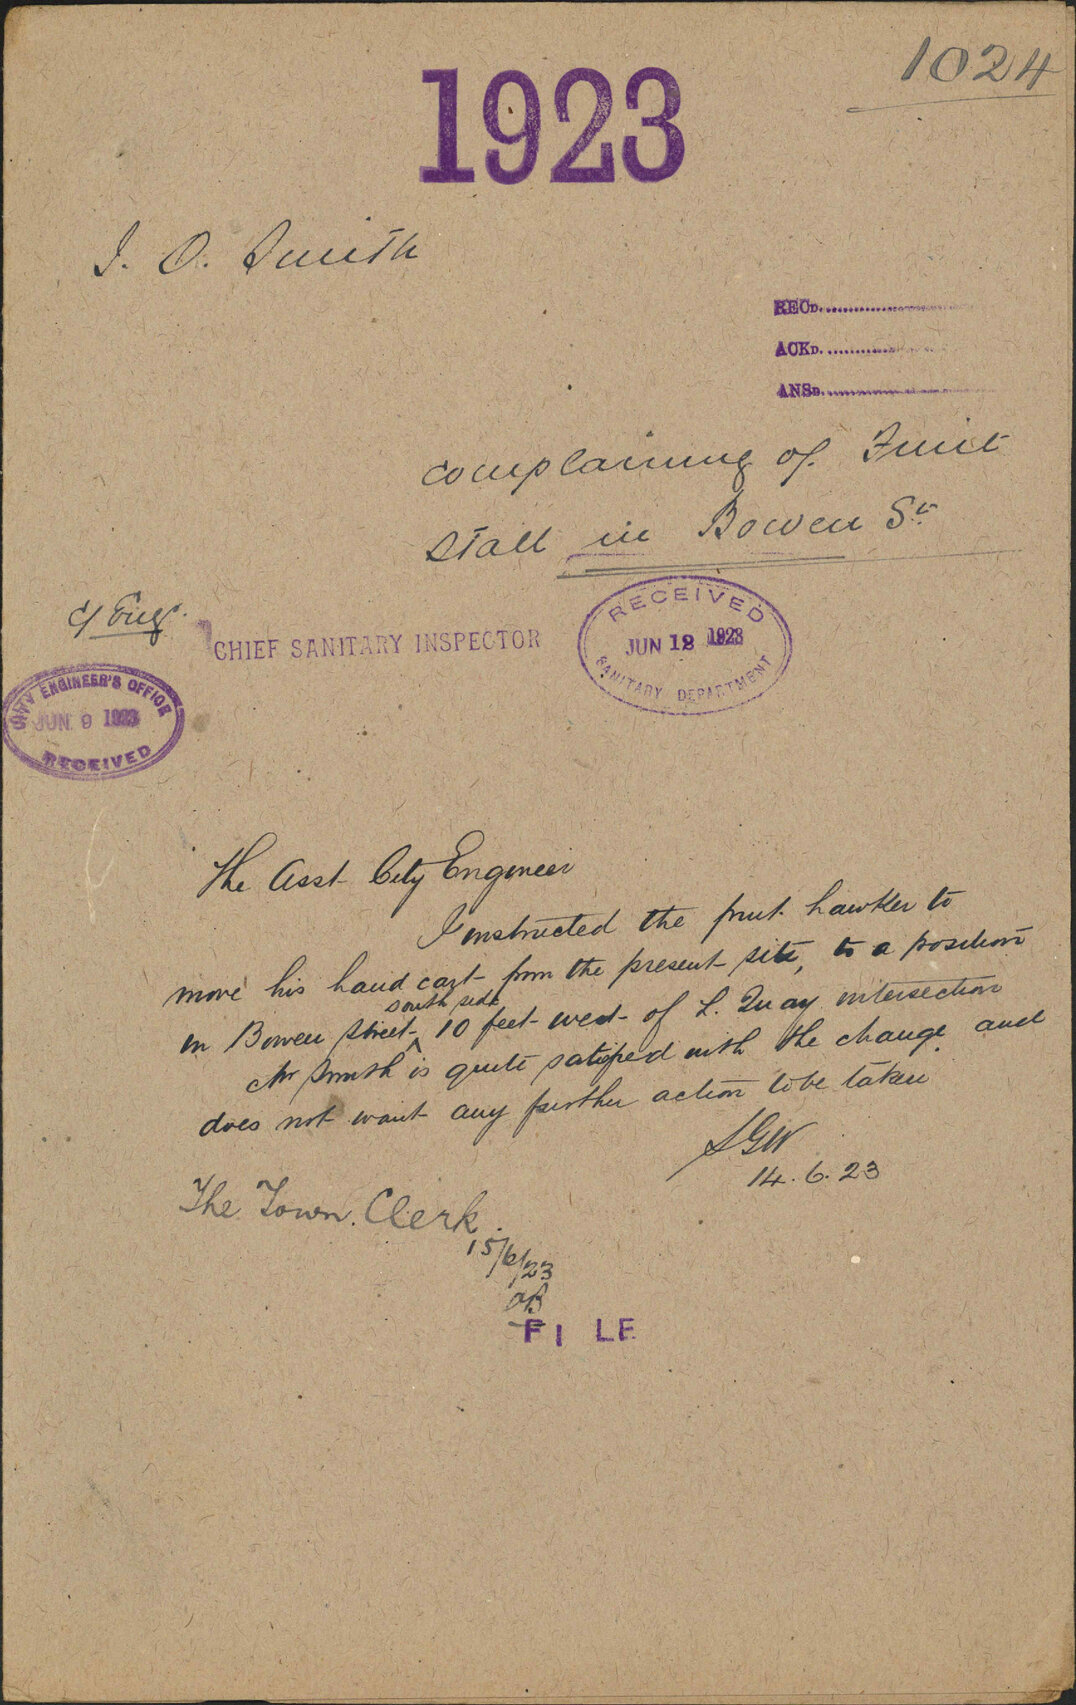 1024
1923
J. O. Smith
RECD.
ACKD.
ANSD.
complaining of Fruit
Stall in Bowen St.
C/ Eng.
CHIEF SANITARY INSPECTOR
RECEIVED
JUN 12 1923
SANITARY DEPARTMENT
CITY ENGINEER'S OFFICE
JUN. 9 1923
RECEIVED
The Asst City Engineer
I instructed the fruit hawker to
move his hand cart from the present site, to a position
south side
in Bowen Street 10 feet west of L. Quay intersection
Mr Smith is quite satisfied with the change and
does not want any further action to be taken
SGW
14.6.23
The Town Clerk.
15/6/23
FILE